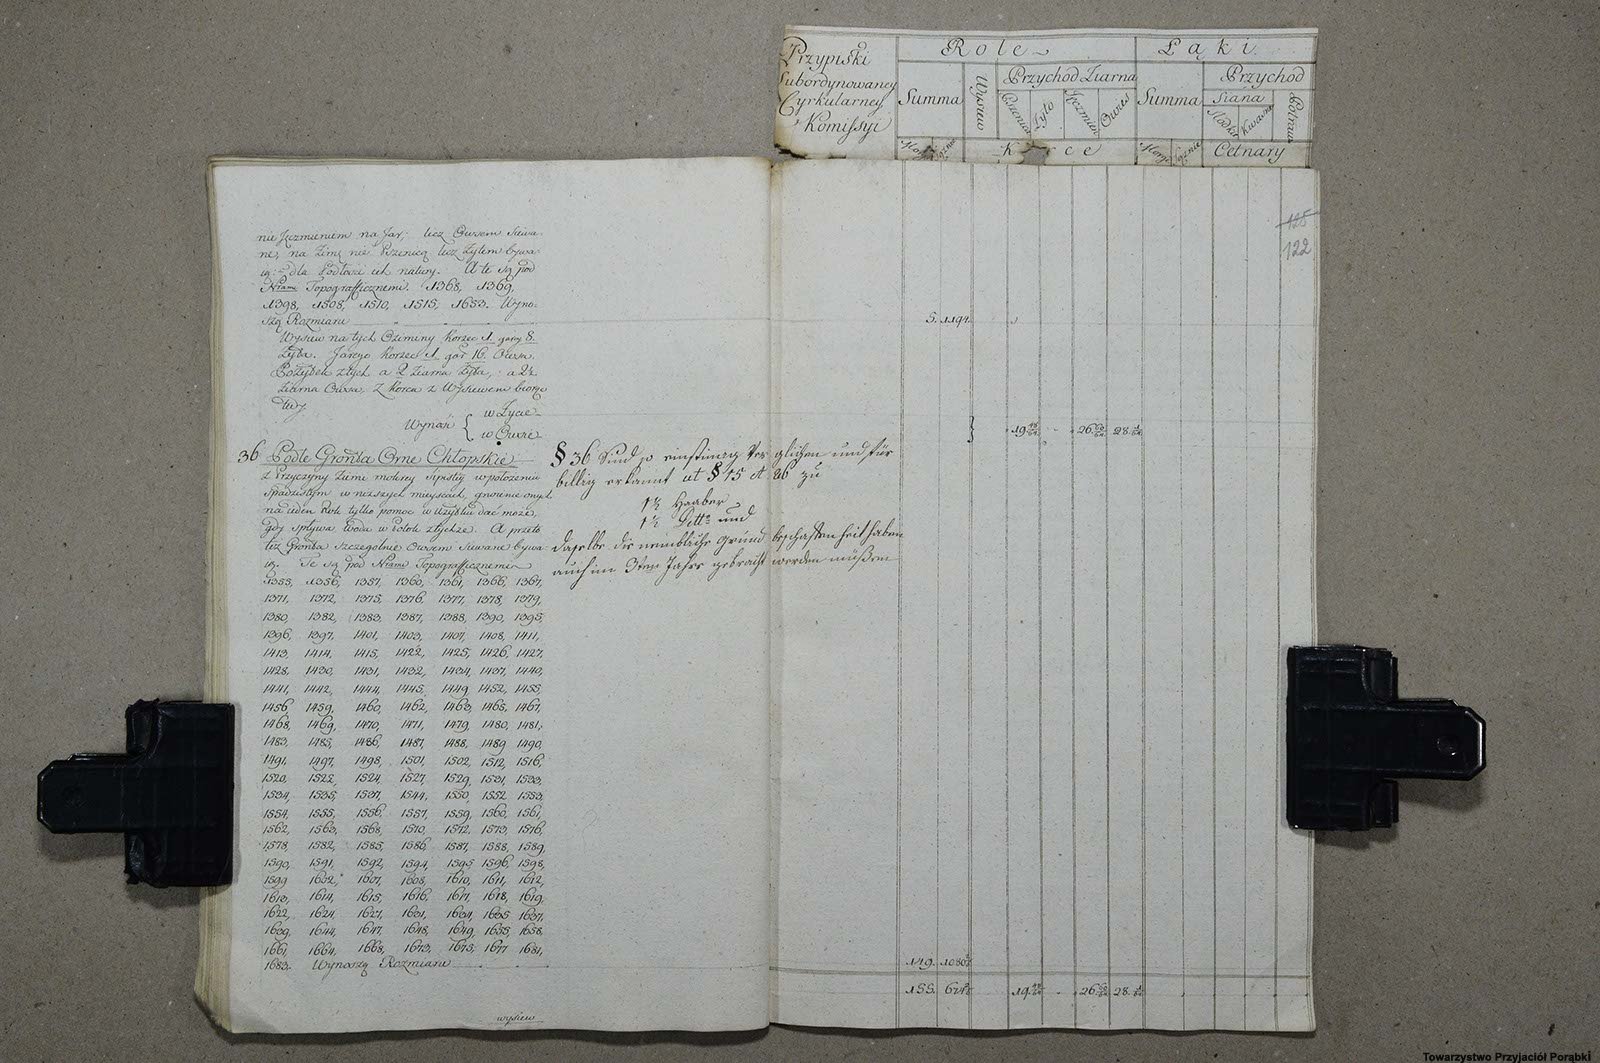 Przypiski
Subordynowaney
Cyrkularney
Komissyi
Role
Łąki
Summa
Wysiew
Przychod Ziarna
Pszenica
Żyto
Jęczmien
Owies
Summa
Przychod
Siana
Słodka
Kwasna
Potraw
Korce
Cetnary
125
122
nie Jęczmieniem na Jar, lecz Owsem siewa-
ne, na Zimę nie Pszenicą lecz Żytem bywa-
ią: dla Podłości ich natury. A te są pod
Nrami Topograficznemi. 1368, 1369,
1398, 1508, 1510, 1515, 1653. Wyno-
szą Rozmiaru
5. 1194.
Wysiew na tych Oziminy Korzec 1 garcy 8.
Żyta. Jarego Korzec 1 gar 16. Owsa.
Pożytek z tych a 2 Ziarna Żyta, a 2½
Ziarna Owsa, z Korca z Wysiewem biorąc
Wynosi { w Życie
w Owsie
19 26 28
36 Podłe Gronta Orne Chłopskie
z Przyczyny Zimi mokrey w położeniu
spadzistym w niższych mieyscach, gnoienie onych
na ieden Rok tylko pomoc w Użytku dać może,
gdy spływa Woda w Potoki A przeto
też Gronta szczegolnie Owsem siewane bywa-
ią. Te są pod Nrami Topograficznemi
§ 36 Sind so einstimig verglichen und für
billig erkannt ut § 15 et 26 zu
1½ Haaber
1½ Ditto und
dieselbe die nembliche Grund beschaffenheit haben
auch im 3ten Jahre gebracht werden müßen
1355, 1356, 1357, 1360, 1361, 1366, 1367,
1371, 1372, 1375, 1376, 1377, 1378, 1379,
1380, 1382, 1383, 1387, 1388, 1390, 1395,
1396, 1397, 1401, 1403, 1407, 1408, 1411,
1413, 1414, 1415, 1422, 1425, 1426, 1427,
1428, 1430, 1431, 1432, 1434, 1437, 1440,
1441, 1442, 1444, 1445, 1449, 1452, 1455,
1456, 1459, 1460, 1462, 1463, 1465, 1467,
1468, 1469, 1470, 1471, 1479, 1480, 1481,
1483, 1485, 1486, 1487, 1488, 1489, 1490,
1491, 1497, 1498, 1501, 1502, 1512, 1516,
1520, 1522, 1524, 1527, 1529, 1531, 1533,
1534, 1535, 1537, 1544, 1550, 1552, 1553,
1554, 1555, 1556, 1557, 1559, 1560, 1561,
1562, 1563, 1568, 1570, 1572, 1573, 1576,
1578, 1582, 1585, 1586, 1587, 1588, 1589,
1590, 1591, 1592, 1594, 1595, 1596, 1598,
1599, 1602, 1607, 1608, 1610, 1611, 1612,
1613, 1614, 1615, 1616, 1617, 1618, 1619,
1622, 1624, 1627, 1631, 1634, 1635, 1637,
1639, 1644, 1647, 1648, 1649, 1655, 1658,
1661, 1664, 1668, 1673, 1675, 1677, 1681,
1683. Wynoszą Rozmiaru
149. 1080
155. 19 26 28
wysiew
Towarzystwo Przyjaciół Porąbki